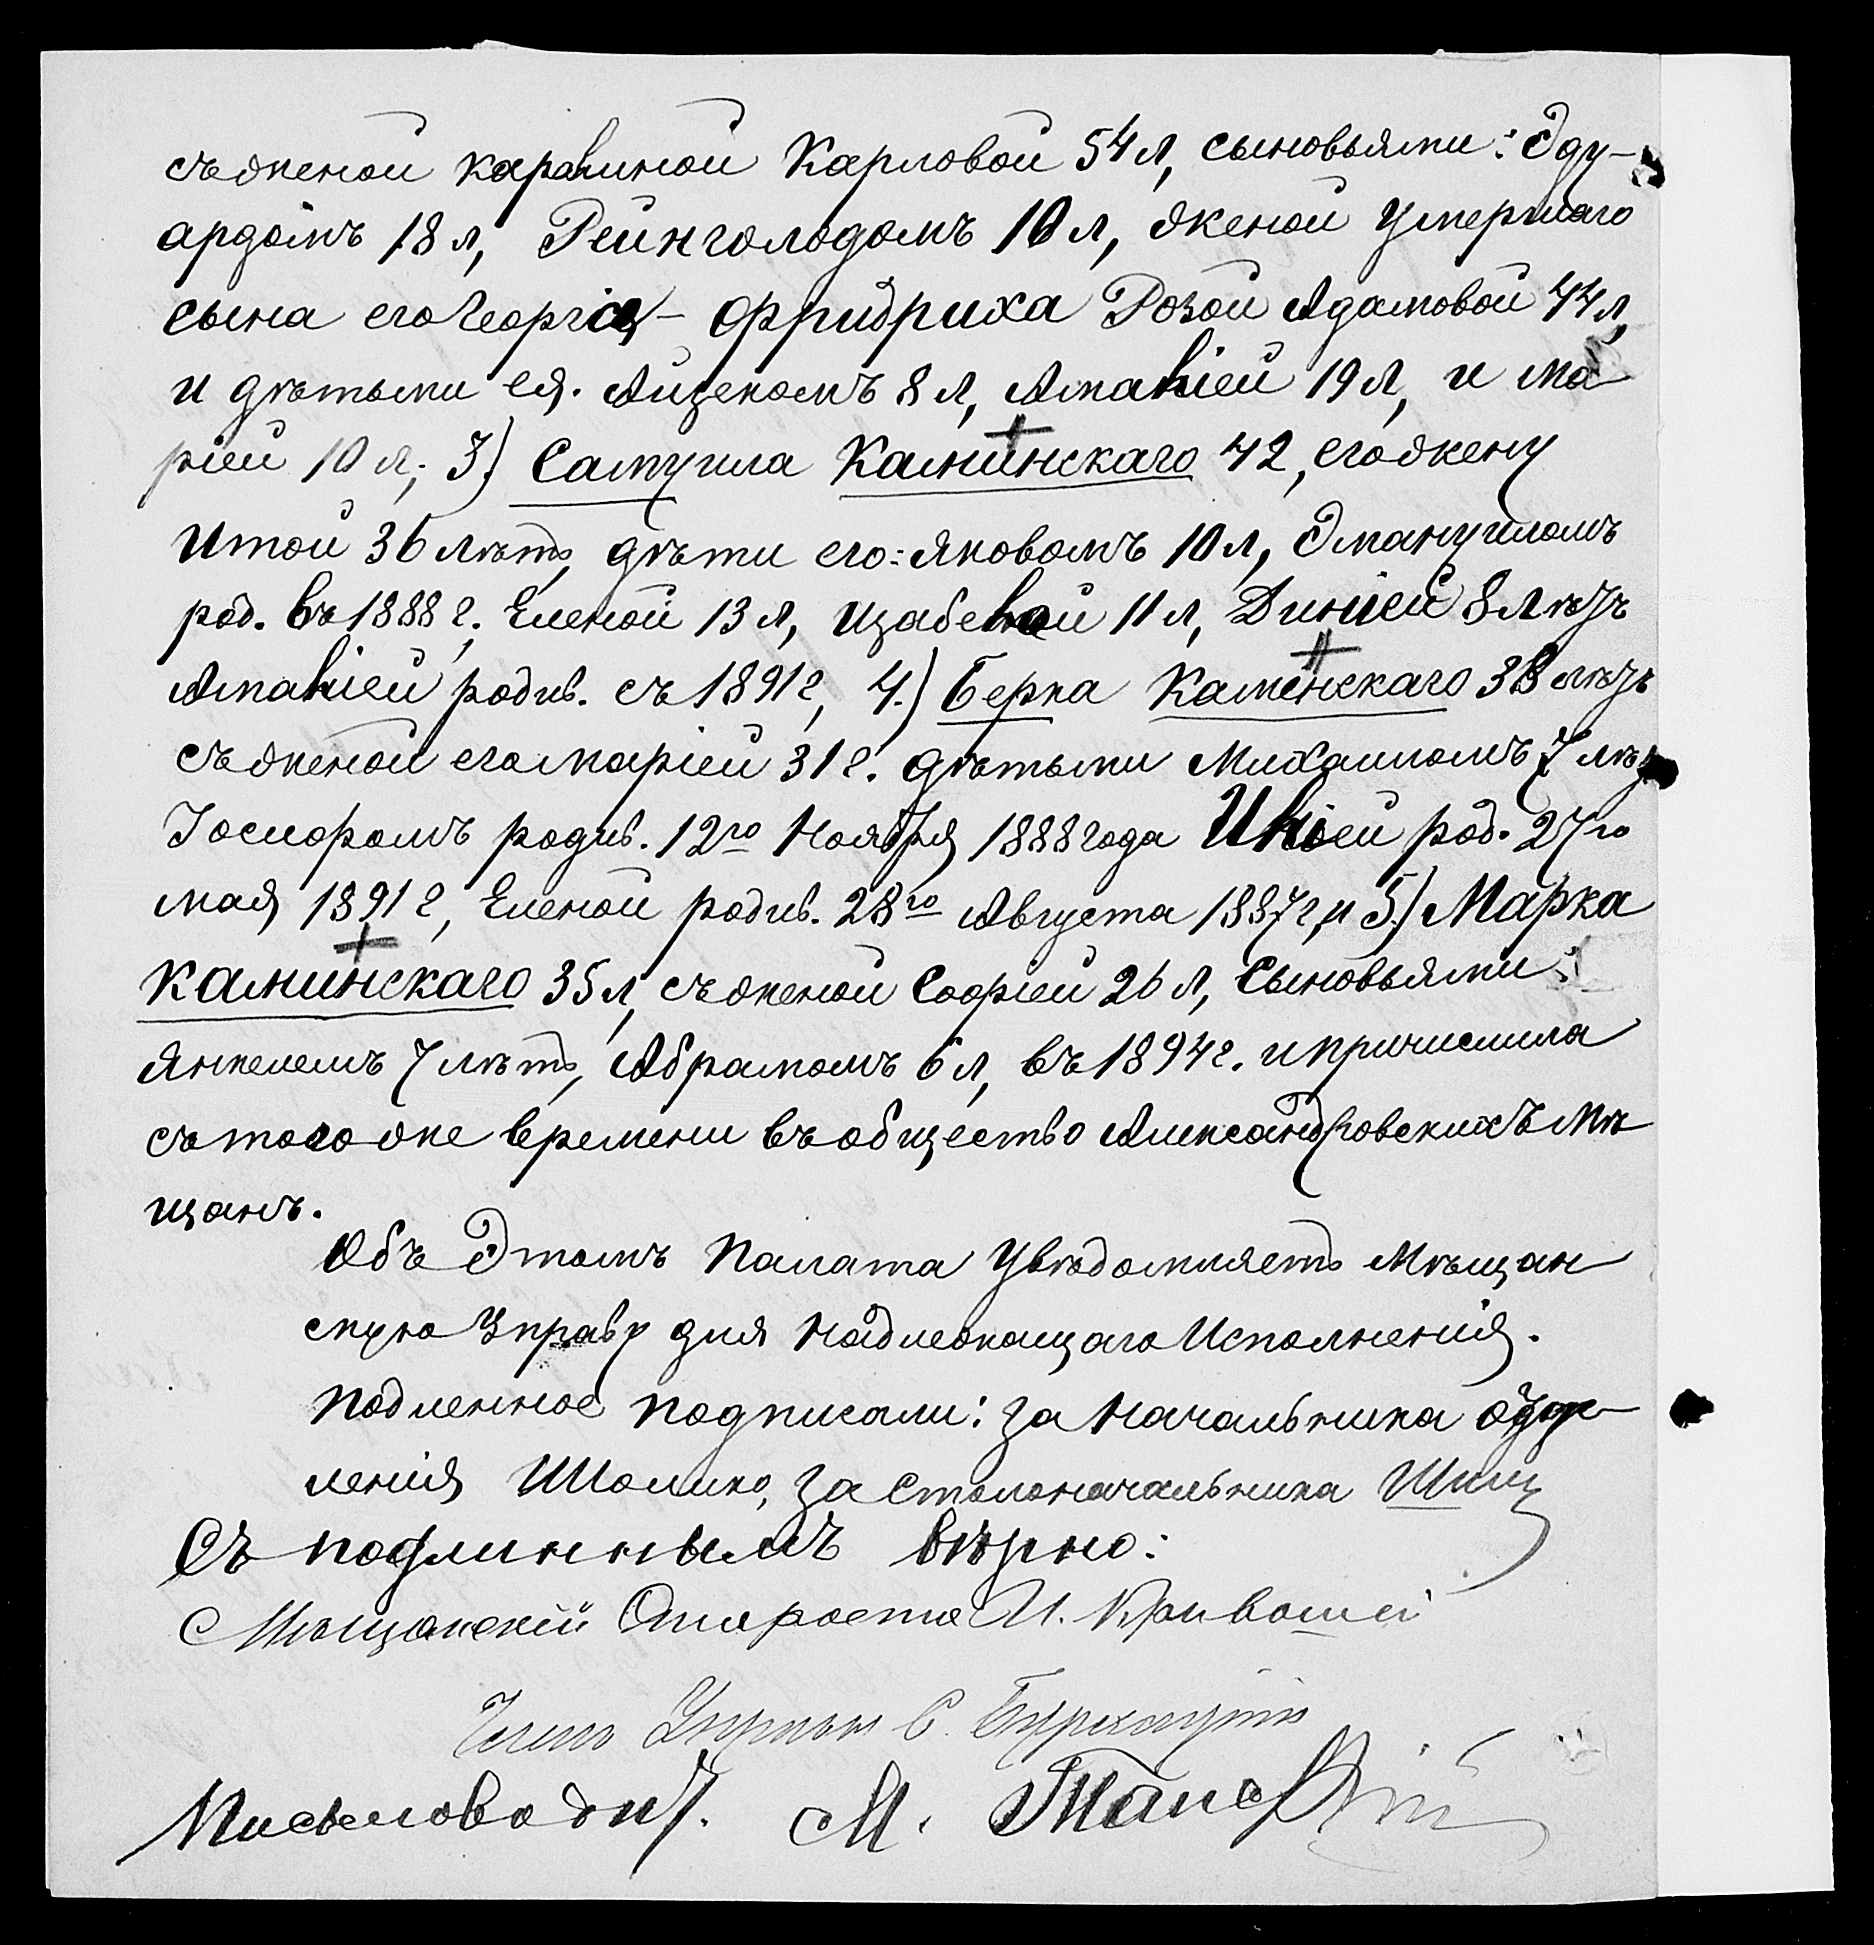 съ женой Каролиной Карловой 54 л, сыновьями: Эду-
ардомъ 18 л, Рейнгольдомъ 10 л, женой умершаго
сына его Георгія- Фридриха Розой Адамовой 44 л,
и дѣтьми ея. 8 л, Амаліей 19 л, и Ма
ріей 10 л; 3.) Самуила Каминскаго 42, его жену
Итой 36 лѣтъ, дѣти его: Яковомъ 10 л, Эмануиломъ
род. въ 1888 г. Еленой 13 л, Изабелой 11 л, 8 лѣтъ
Амаліей родив. съ 1891 г, 4.) Берка Каменскаго 38 лѣтъ
съ женой его Маріей 31 г. дѣтьми Михаиломъ 7 лѣтъ
Іосифомъ родив. 12го Ноября 1888 года род. 27го
мая 1891 г, Еленой родив. 28го Августа 1887 г, и 5.) Марка
Каминскаго 35 л, съ женой Софіей 26 л, сыновьями:
Янкелемъ 7 лѣтъ, Абрамомъ 6 л, въ 1894 г. и причислила
съ того же времени въ общество Александровскихъ Мѣ
щанъ.
Объ Этомъ Палата увѣдомляетъ Мѣщан
скую Управу для надлежащаго Исполненія.
Подленное подписали: за Начальника отдѣ-
ленія за Столоначальника
Съ подлиннымъ вѣрно:
Мѣщанскій Староста И. Кривошей
Членъ Управы С.
Письмоводит. М.